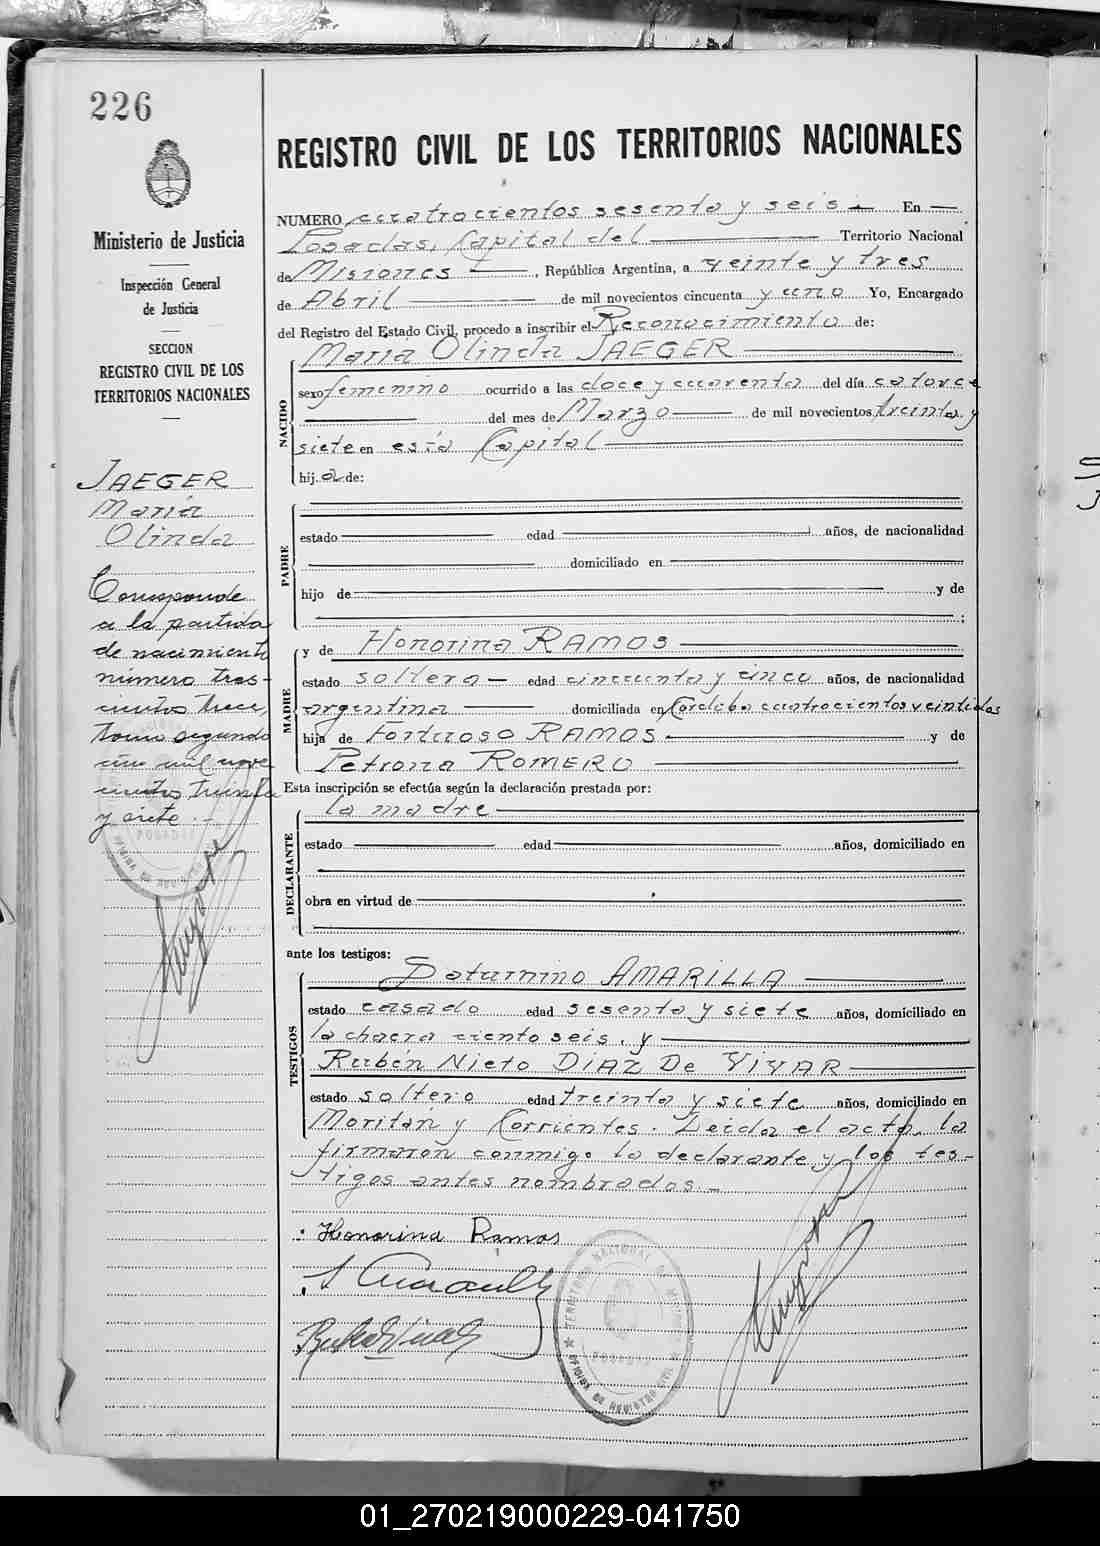 226
Ministerio de Justicia
Inspección General
de Justicia
SECCION
REGISTRO CIVIL DE LOS
TERRITORIOS NACIONALES
JAEGER
María
Olinda
Corresponde
a la partida
de nacimiento
número tres-
cientos trece,
tomo segundo
año mil nove
cientos treinta
y siete.-
REGISTRO CIVIL DE LOS TERRITORIOS NACIONALES
NUMERO cuatrocientos sesenta y seis.- En
Posadas, Capital del Territorio Nacional
de Misiones, República Argentina, a veinte y tres
de Abril de mil novecientos cincuenta y uno Yo, Encargado
del Registro del Estado Civil, procedo a inscribir el Reconocimiento de:
María Olinda JAEGER
NACIDO
sexo femenino ocurrido a las doce y cuarenta del día catorce
del mes de Marzo de mil novecientos treinta y
siete en esta Capital
hij a de:
PADRE
estado edad años, de nacionalidad
domiciliado en
hijo de y de
;
MADRE
y de Honorina RAMOS
estado soltera - edad cincuenta y cinco años, de nacionalidad
argentina domiciliada en Córdoba cuatrocientos veintidos
hija de Fortuoso RAMOS y de
Petrona ROMERO
Esta inscripción se efectúa según la declaración prestada por:
la madre
DECLARANTE
estado edad años, domiciliado en
obra en virtud de
ante los testigos:
TESTIGOS
Saturnino AMARILLA
estado casado edad sesenta y siete años, domiciliado en
la chacra ciento seis, y
Rubén Nieto DIAZ De VIVAR
estado soltero edad treinta y siete años, domiciliado en
Moritán y Corrientes. Leida el acta, la
firmaron conmigo la declarante y los tes-
tigos antes nombrados.-
Honorina Ramos
TERRITORIO NACIONAL DE MISIONES
POSADAS
OFICINA DE REGISTRO CIVIL
01_270219000229-041750